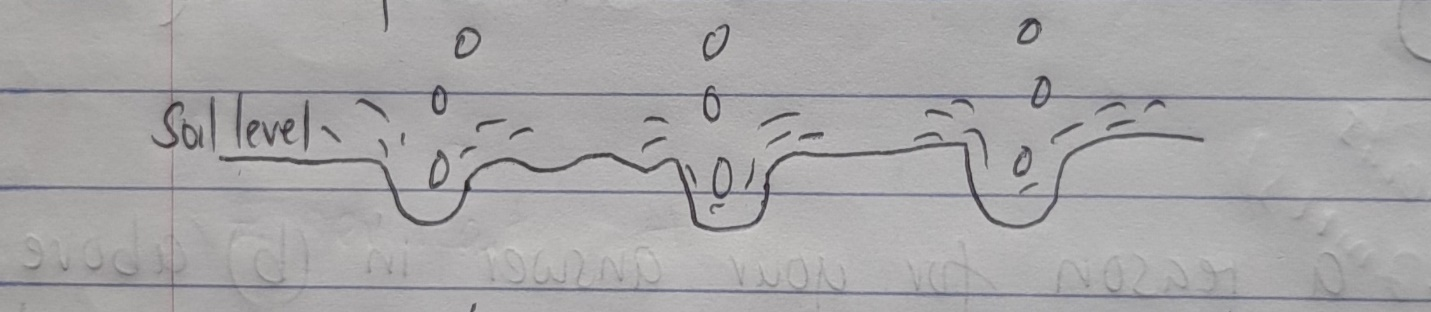 Soil level